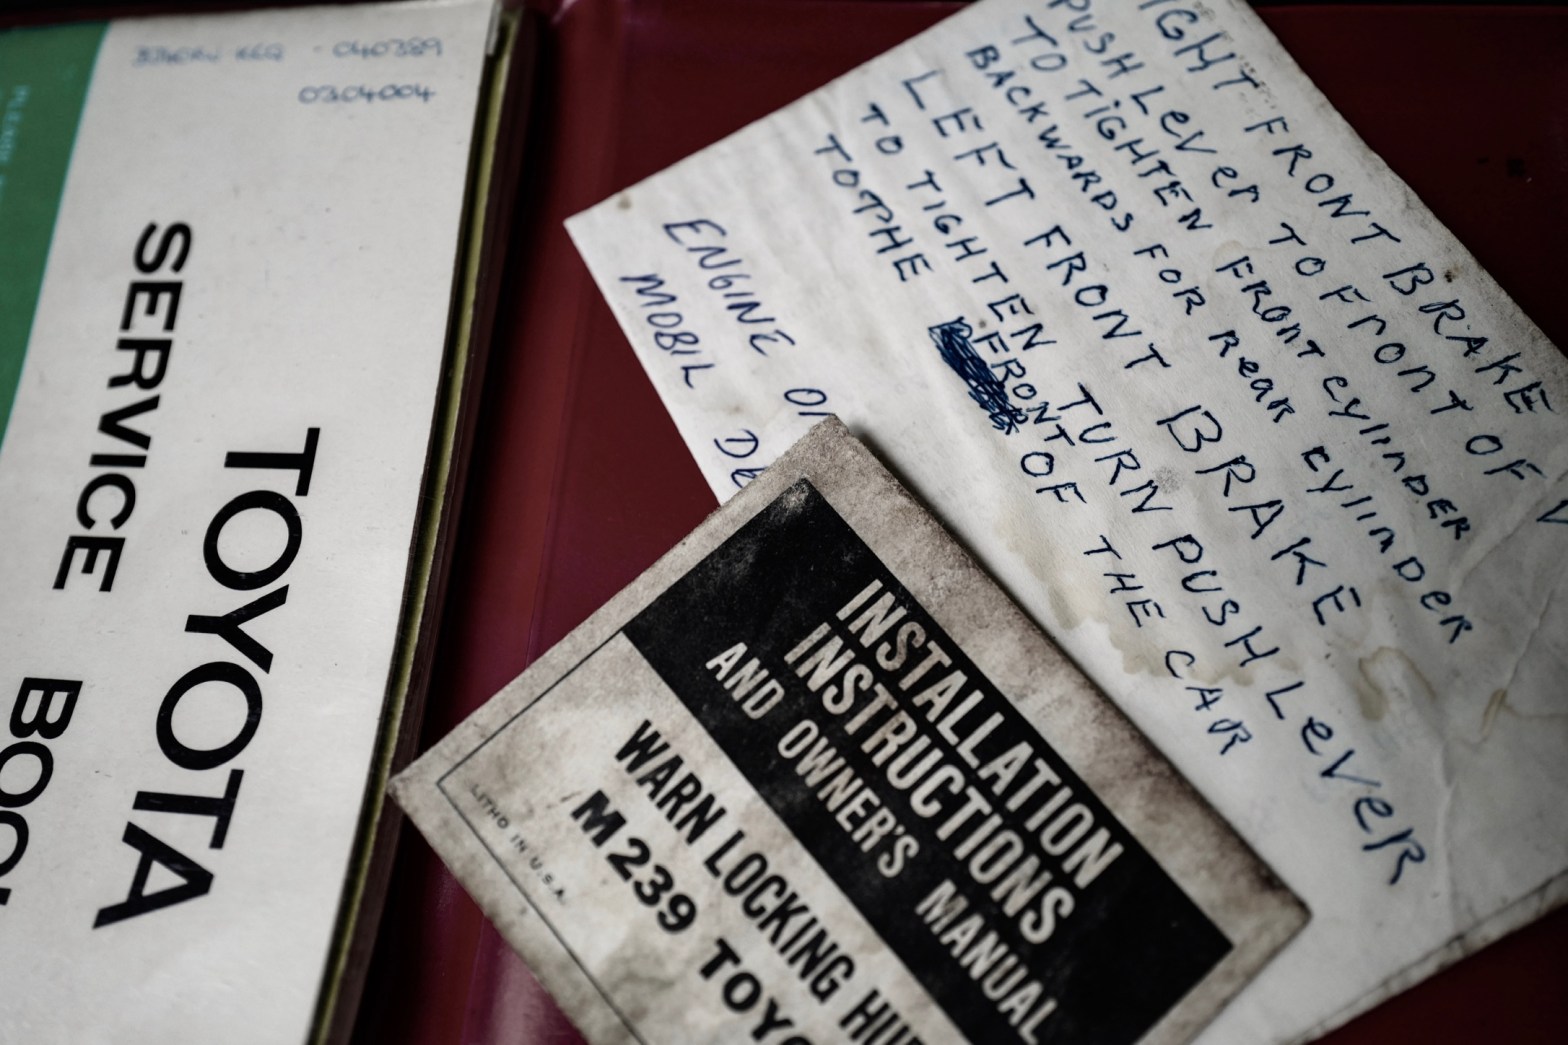 040389
0304004
TOYOTA
SERVICE BOOK
IGHT FRONT BRAKE
PUSH Lever TO Front OF
TO TIGHTEN FRONT cylinDER
BACKWARDS FOR rear cylinDer
LEFT FRONT BRAKE
TO TIGHTEN TURN PUSH Lever
TO THE FRONT OF THE CAR
ENGINE
MOBIL
INSTALLATION
INSTRUCTIONS
AND OWNER'S MANUAL
WARN LOCKING HU
M239 TOYO
LITHO IN U.S.A.